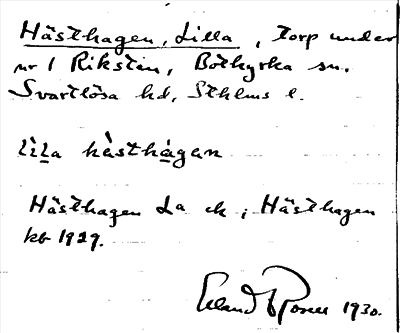 Hästhagen, Lilla, torp under
nr 1 Rikstén, Botkyrka sn.
Svartlösa hd, Sthlms l.
lìl̲a hàsthágan
Hästhagen La ek; Hästhagen
kb 1929.
Erland Rosell 1930.